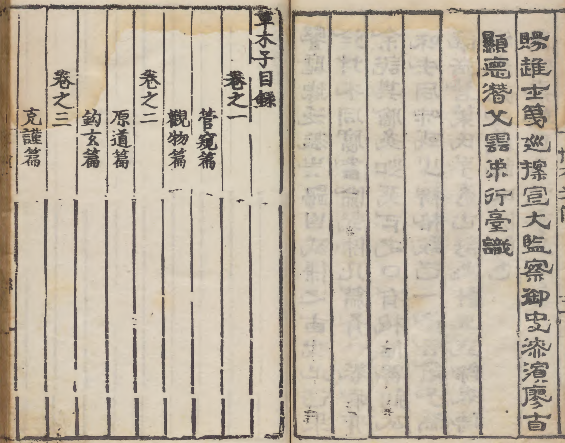 賜進士第巡按宣大監察御史漆濱廖自
顯悳潛父雲中行臺識
草木子目錄
卷之一
管窺篇
觀物篇
卷之二
原道篇
鈎玄篇
卷之三
克謹篇